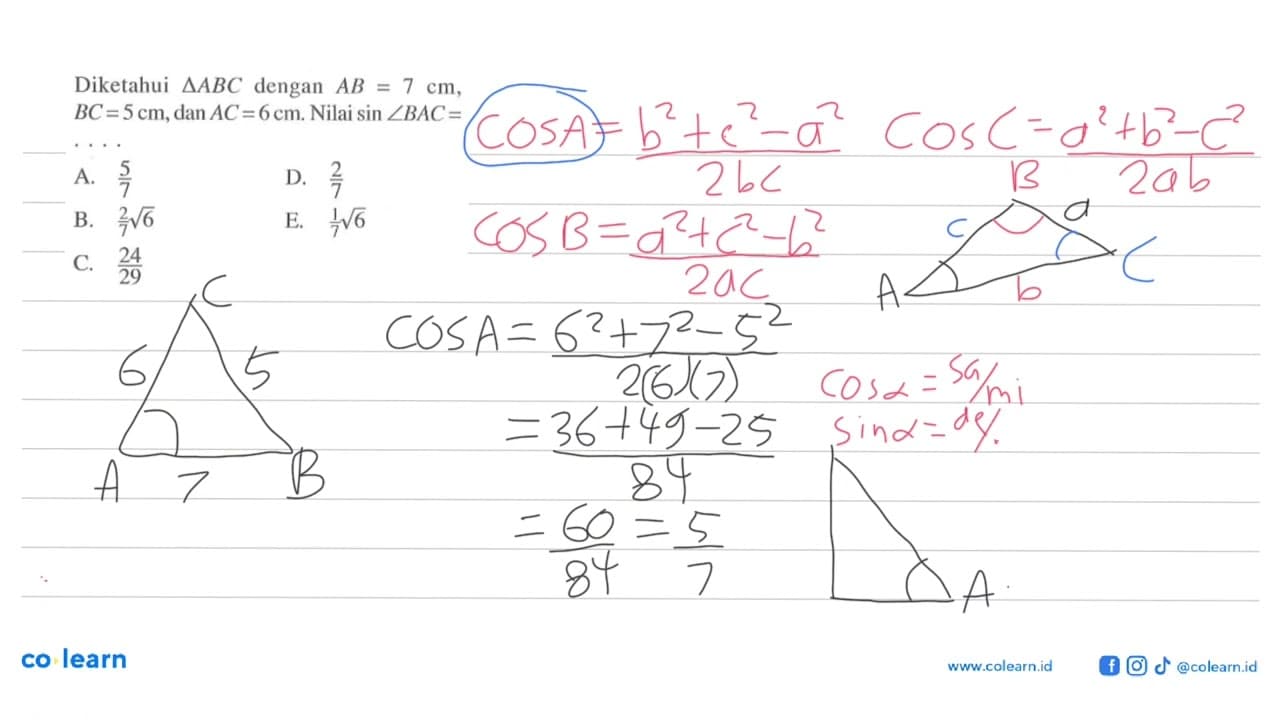 Diketahui ΔABC dengan AB = 7 cm,
BC = 5 cm, dan AC = 6 cm. Nilai sin ∠BAC =
. . . .
A. 5/7 D. 2/7
B. 2/7√6 E. 1/7√6
C. 24/29
COSA = b²+c²-a²/2bc
COSC = a²+b²-c²/2ab
COSB = a²+c²-b²/2ac
B
c a
A b C
C
6 5
A 7 B
COSA = 6²+7²-5²/2(6)(7)
= 36+49-25/84
= 60/84 = 5/7
Cosα = sa/mi
sinα = de/.
A
co learn
www.colearn.id
@colearn.id